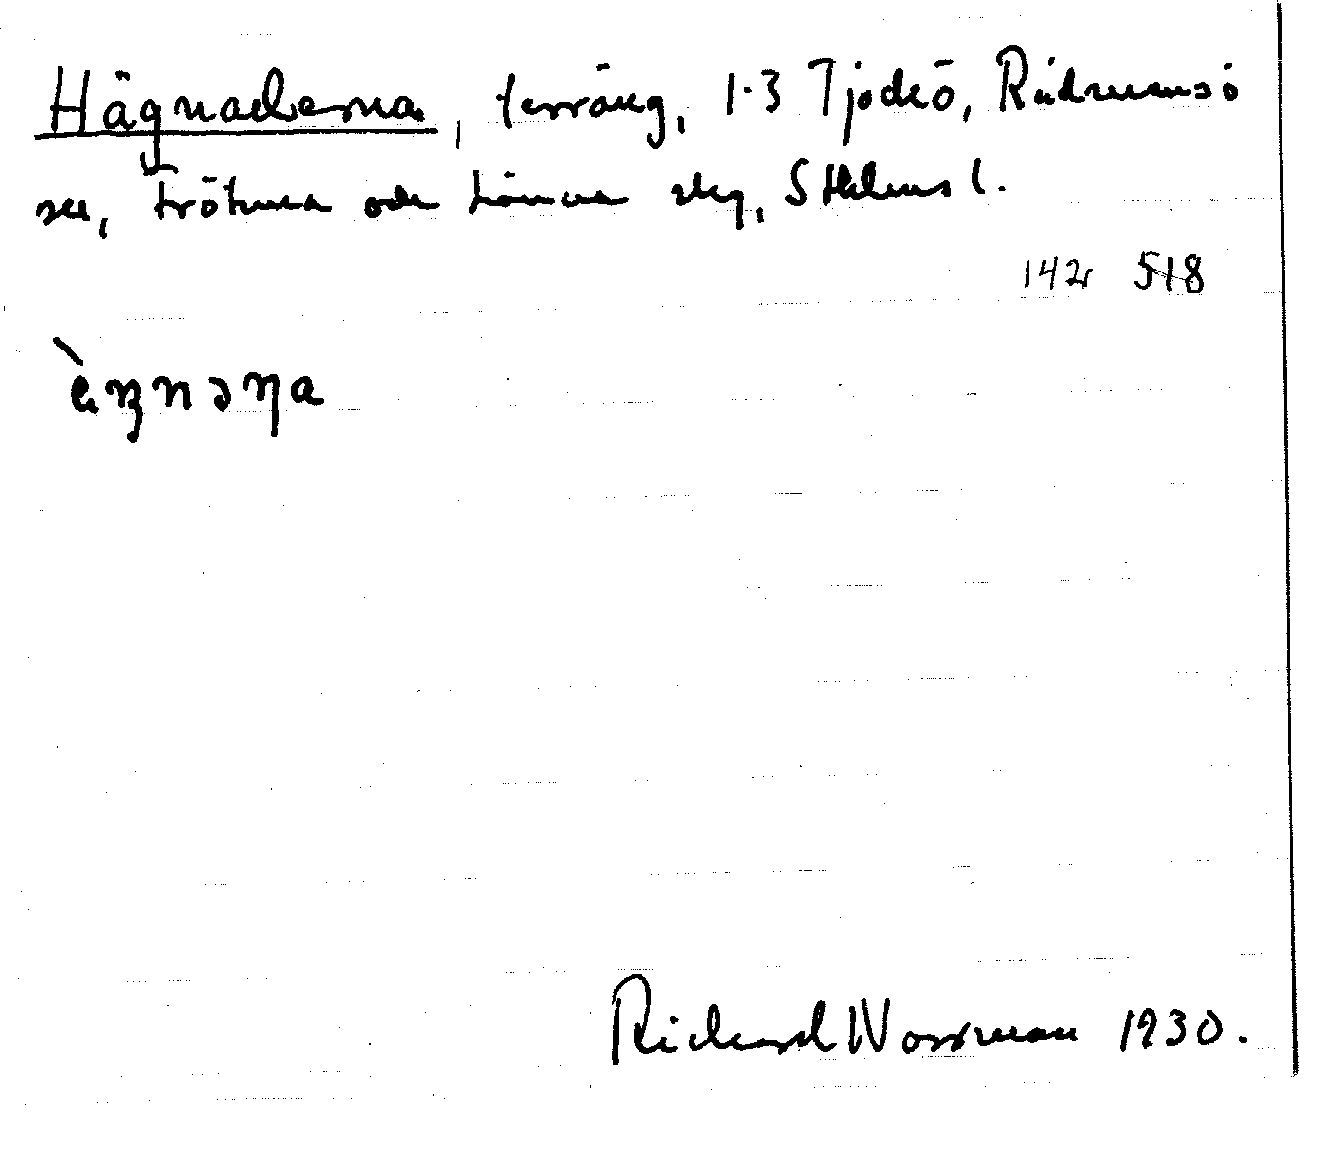 Hägnaderna, terräng, 1-3 Tjockö, Rådmansö
sn, Frötuna och Länna skg, Sthlms l.
142r 518
Richard Norrman 1930.